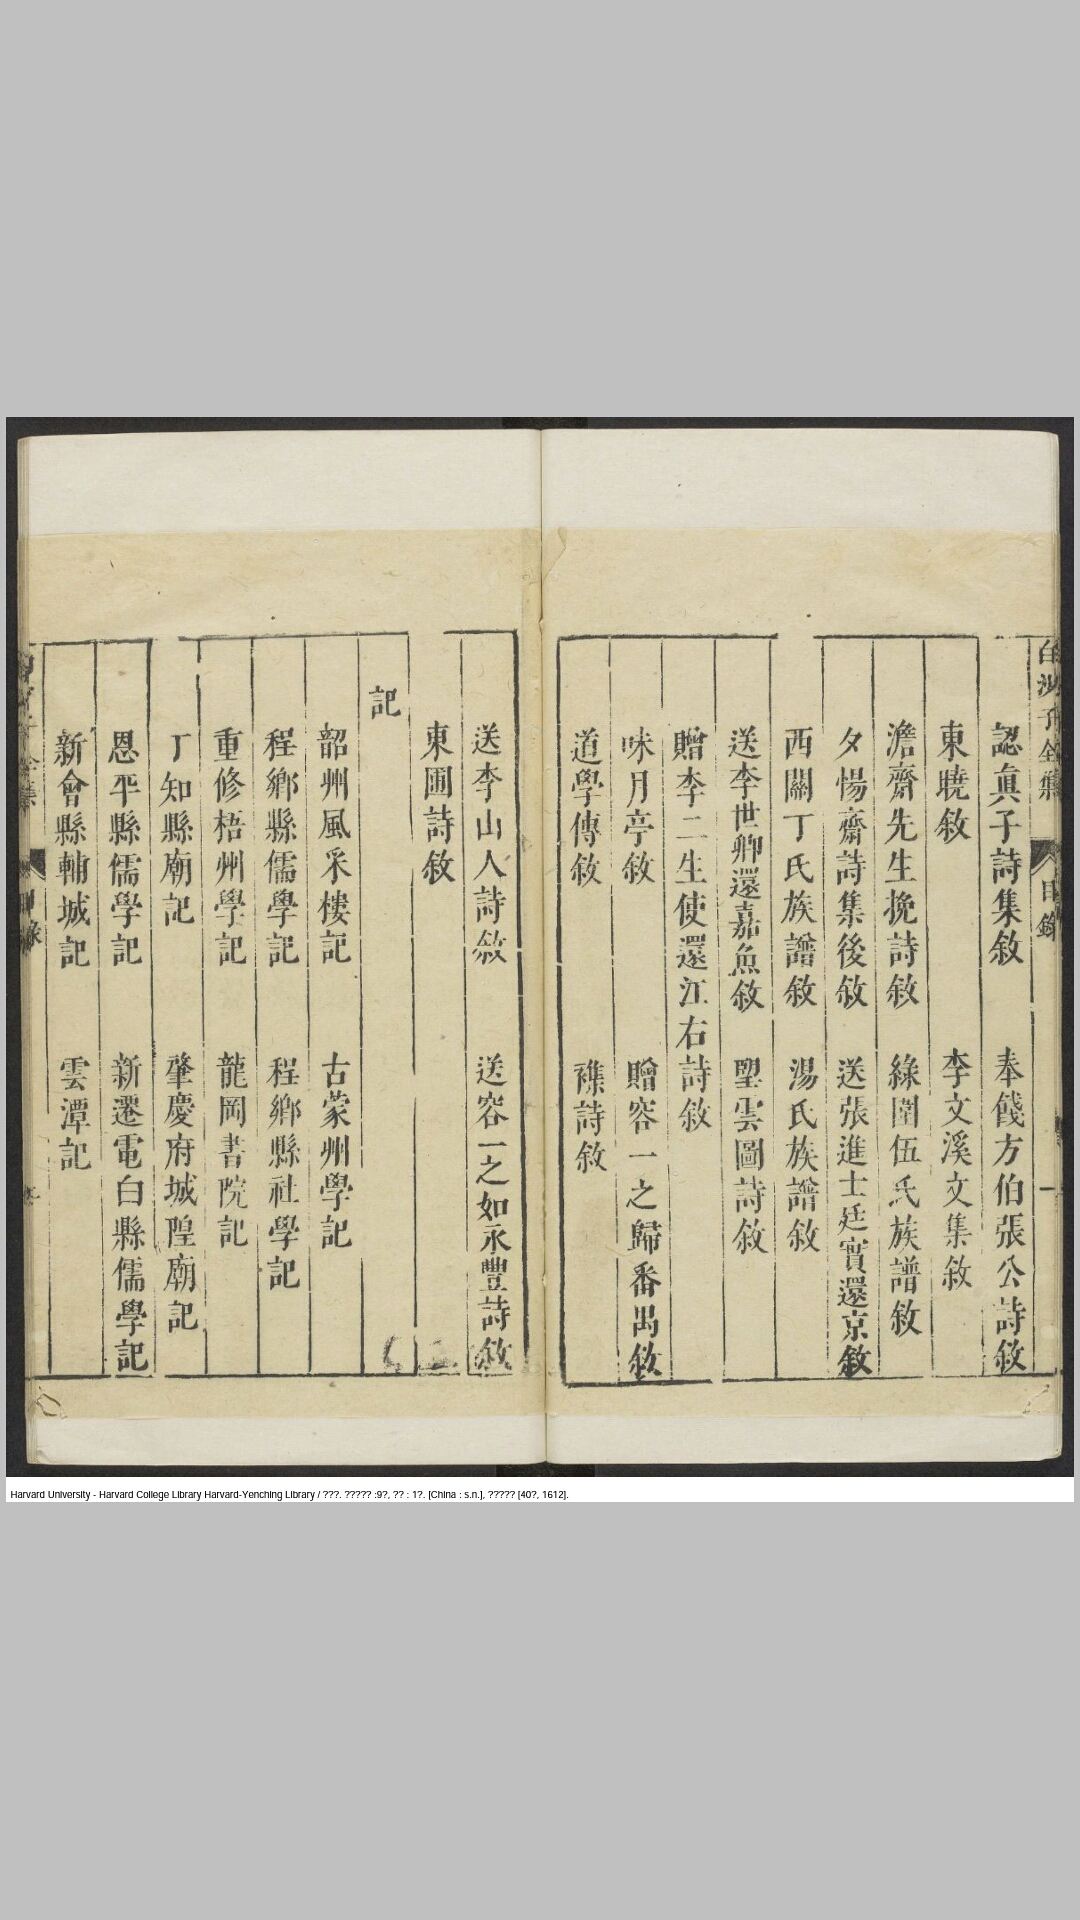 白沙子全集
目錄
一
認眞子詩集敘　奉餞方伯張公詩敘
東曉敘　李文溪文集敘
澹齋先生挽詩敘　綠圍伍氏族譜敘
夕惕齋詩集後敘　送張進士廷實還京敘
西關丁氏族譜敘　湯氏族譜敘
送李世卿還嘉魚敘　望雲圖詩敘
贈李二生使還江右詩敘
味月亭敘　贈容一之歸番禺敘
道學傳敘　襍詩敘
送李山人詩敘　送容一之如永豐詩敘
東圃詩敘
記
韶州風采樓記　古蒙州學記
程鄉縣儒學記　程鄉縣社學記
重修梧州學記　龍岡書院記
丁知縣廟記　肇慶府城隍廟記
恩平縣儒學記　新遷電白縣儒學記
新會縣輔城記　雲潭記
Harvard University - Harvard College Library Harvard-Yenching Library / ???. ????? :9?, ?? : 1?. [China : s.n.], ????? [40?, 1612].